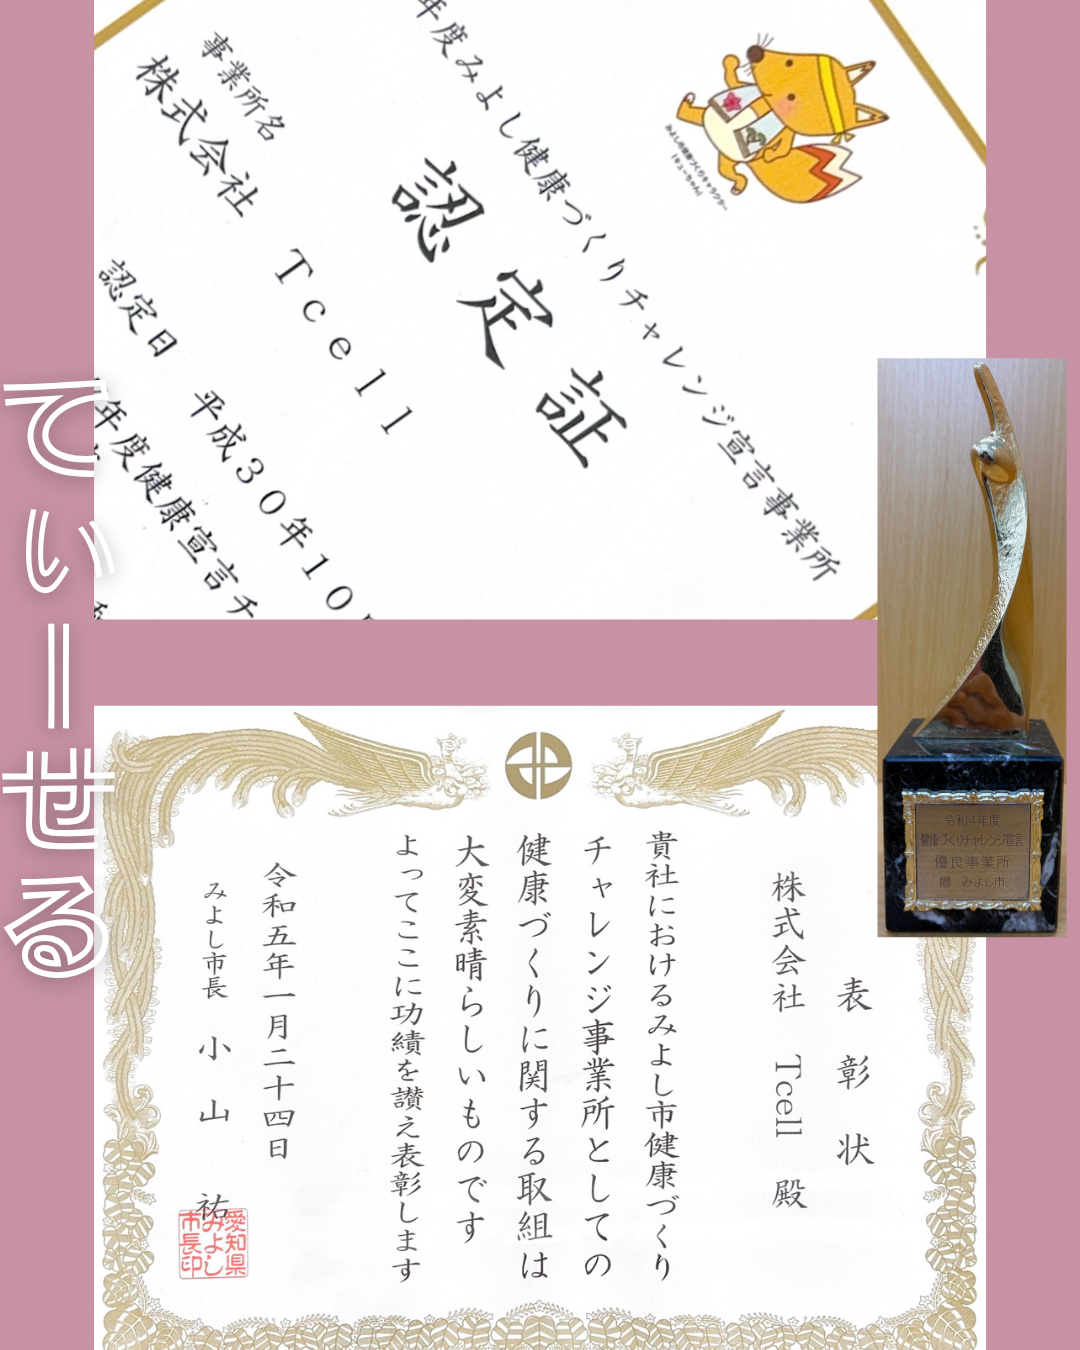 年度みよし健康づくりチャレンジ宣言事業所
認定証
事業所名
株式会社 Tcell
認定日 平成30年10
年度健康宣言チ
みよしの健康づくりキャラクター
「キューちゃん」
てぃーせる
令和4年度
健康づくりチャレンジ宣言
優良事業所
贈 みよし市
表彰状
株式会社 Tcell 殿
貴社におけるみよし市健康づくり
チャレンジ事業所としての
健康づくりに関する取組は
大変素晴らしいものです
よってここに功績を讃え表彰します
令和五年一月二十四日
みよし市長 小山 祐
愛知県
みよし
市長印